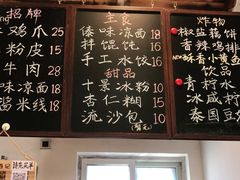 招牌
鸡爪 25
粉皮 15
牛肉 28
味凉面 18
酱米线 18
主食
傣味凉面 18
拌馄饨 16
手工水饺 16
甜品
十景冰粉 10
杏仁糊 15
流沙包 10
炸物
椒盐藕饼
香辣鸡排
NEW 酥香小黄鱼
饮品
青柠水
冰咸柠
泰国豆